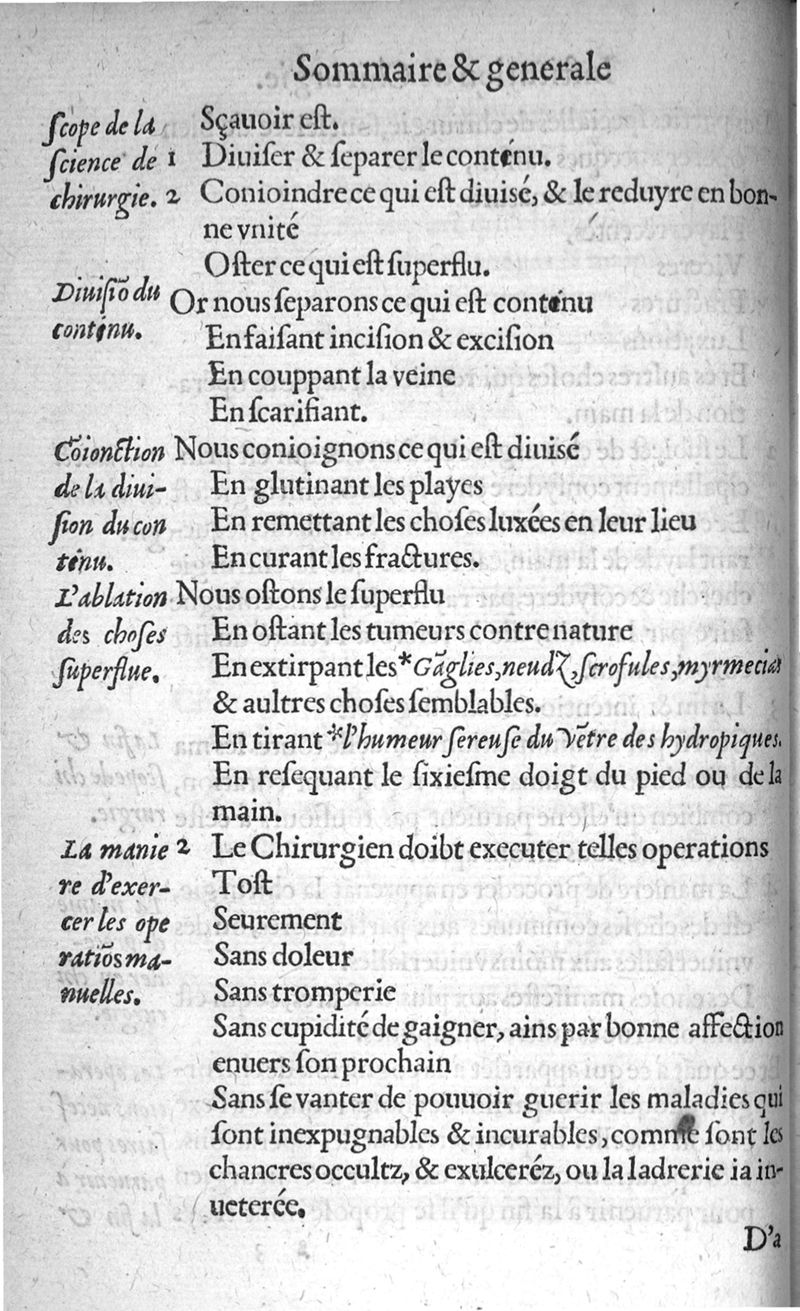 Sommaire & generale
ſcope de la
ſcience de
chirurgie.
Sçauoir eſt.
1 Diuiſer & ſeparer le contẽnu.
2 Conioindre ce qui eſt diuisé, & le reduyre en bon-
ne vnité
Oſter ce qui eſt ſuperflu.
Diuiſiõ du
contẽnu.
Or nous ſeparons ce qui eſt contẽnu
En faiſant inciſion & exciſion
En couppant la veine
En ſcarifiant.
Cõionction
de la diui-
ſion du con
tẽnu.
Nous conioignons ce qui eſt diuisé
En glutinant les playes
En remettant les choſes luxées en leur lieu
En curant les fractures.
L'ablation
des choſes
ſuperflue.
Nous oſtons le ſuperflu
En oſtant les tumeurs contre nature
En extirpant les *Gãglies, neudz, ſcrofules, myrmecias
& aultres choſes ſemblables.
En tirant *l'humeur ſereuſe du vẽtre des hydropiques.
En reſequant le ſixieſme doigt du pied ou de la
main.
La manie
re d'exer-
cer les ope
ratiõs ma-
nuelles.
2 Le Chirurgien doibt executer telles operations
Toſt
Seurement
Sans doleur
Sans tromperie
Sans cupidité de gaigner, ains par bonne affection
enuers ſon prochain
Sans ſe vanter de pouuoir guerir les maladies qui
ſont inexpugnables & incurables, comme ſont les
chancres occultz, & exulceréz, ou la ladrerie ia in-
ueterée.
D'a